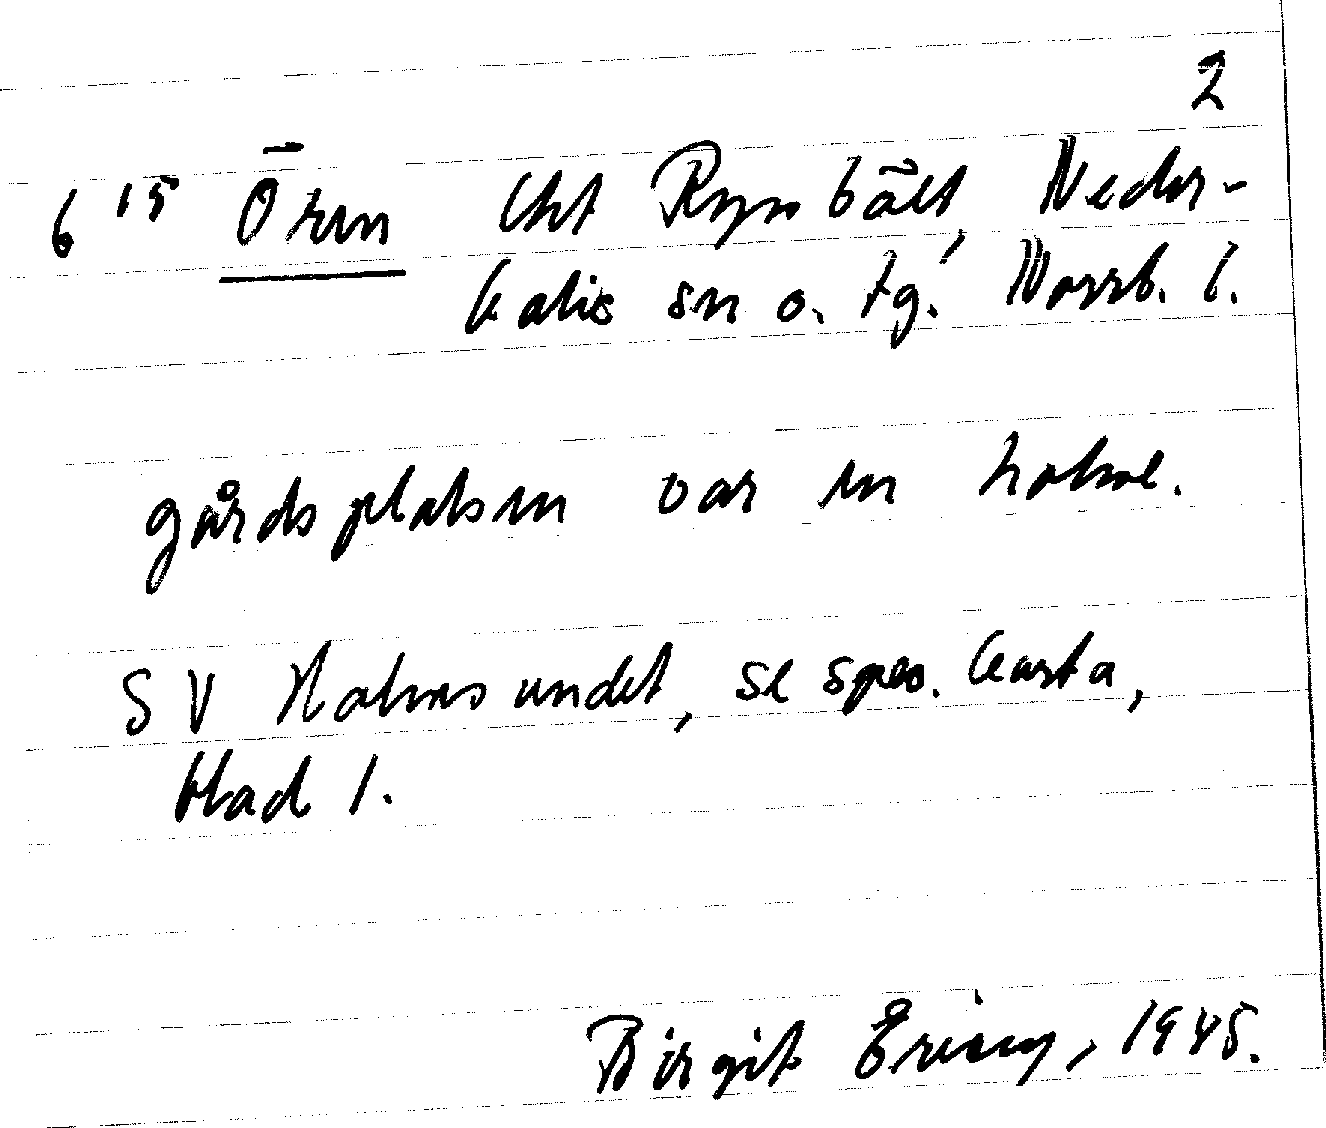 2
6 15 Ören lht Ryssbält, Neder-
kalix sn o. tg. Norrb. l.
gårdsplatsen var en holme.
SV Holmsundet, se spec. karta,
blad 1.
Birgit Ering, 1945.